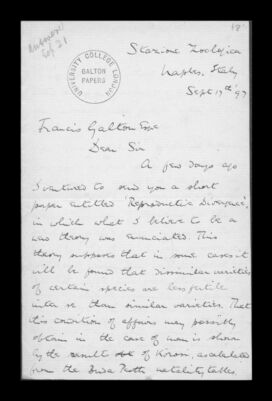 Answered
Sep 21
UNIVERSITY COLLEGE LONDON
GALTON
PAPERS
Stazione Zoologica
Naples, Italy
Sept 17th 97
Francis Galton Esqr
Dear Sir
A few days ago
I ventured to send you a short
paper entitled 'Reproductive Divergence',
in which what I believe to be a
new theory was enunciated. This
theory supposes that in some cases it
will be found that dissimilar varieties
of certain species are less fertile
inter se than similar varieties. That
this condition of affairs may possibly
obtain in the case of man is shown
by the result of Korosi, as calculated
from the Buda Pesth natality tables.